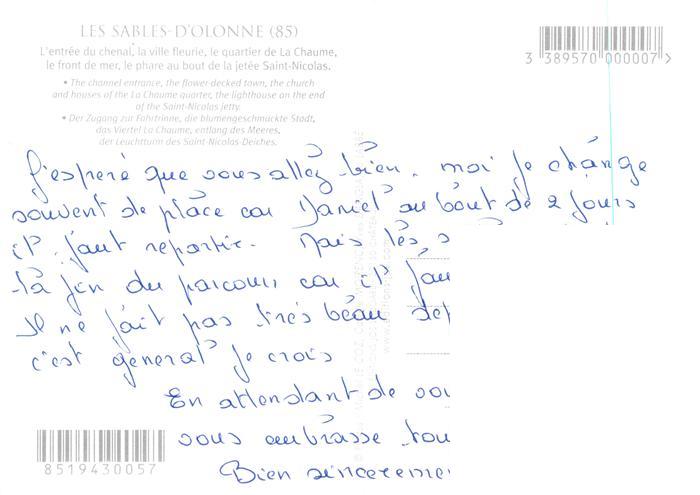 LES SABLES-D'OLONNE (85)
L'entrée du chenal, la ville fleurie, le quartier de La Chaume,
le front de mer, le phare au bout de la jetée Saint-Nicolas.
• The channel entrance, the flower-decked town, the church
and houses of the La Chaume quarter, the lighthouse on the end
of the Saint-Nicolas jetty.
• Der Zugang zur Fahrtrinne, die blumengeschmückte Stadt,
das Viertel La Chaume, entlang des Meeres,
der Leuchtturm des Saint-Nicolas-Deiches.
3 389570 000007 >
J'esperé que vous allez bien. moi je change
souvent de place car Daniel au bout de 2 jours
il faut repartir. Mais les
la fin du parcours car il
Il ne fait pas très beau
c'est general je crois
En attendant de
vous embrasse
Bien
8519430057